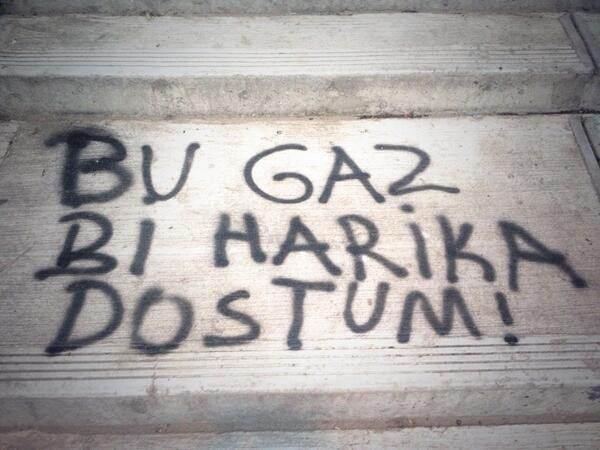 BU GAZ
BI HARİKA
DOSTUM!